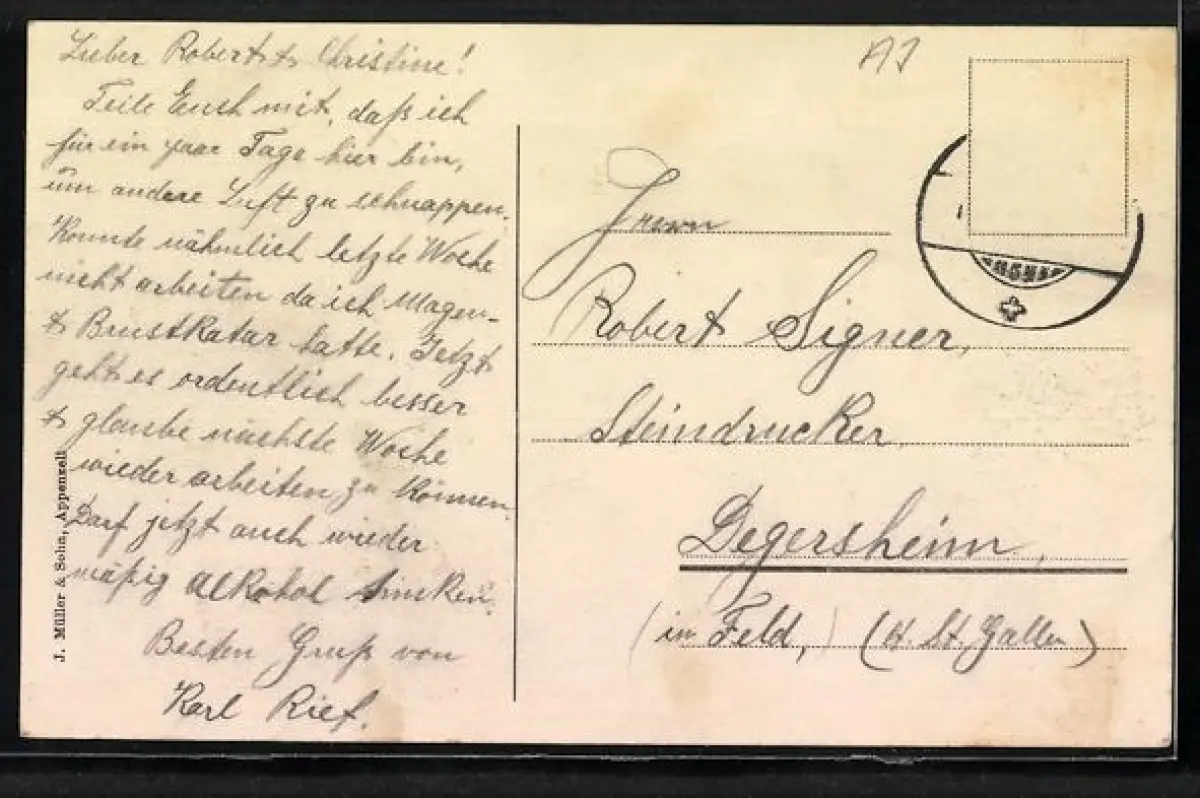 Lieber Robert & Christine!
Teile Euch mit, daß ich
für ein paar Tage hier bin,
um andere Luft zu schnappen.
Konnte nähmlich letzte Woche
nicht arbeiten da ich Magen-
& BrustKatar hatte. Jetzt
geht es ordentlich besser
& glaube nächste Woche
wieder arbeiten zu können.
Darf jetzt auch wieder
mäßig alkohol trinken.
Besten Gruß von
Karl Rief.
J. Müller & Sohn, Appenzell
AI
Herrn
Robert Signer,
Steindrucker,
Degersheim,
(im Feld,) (Kt. St. Gallen)